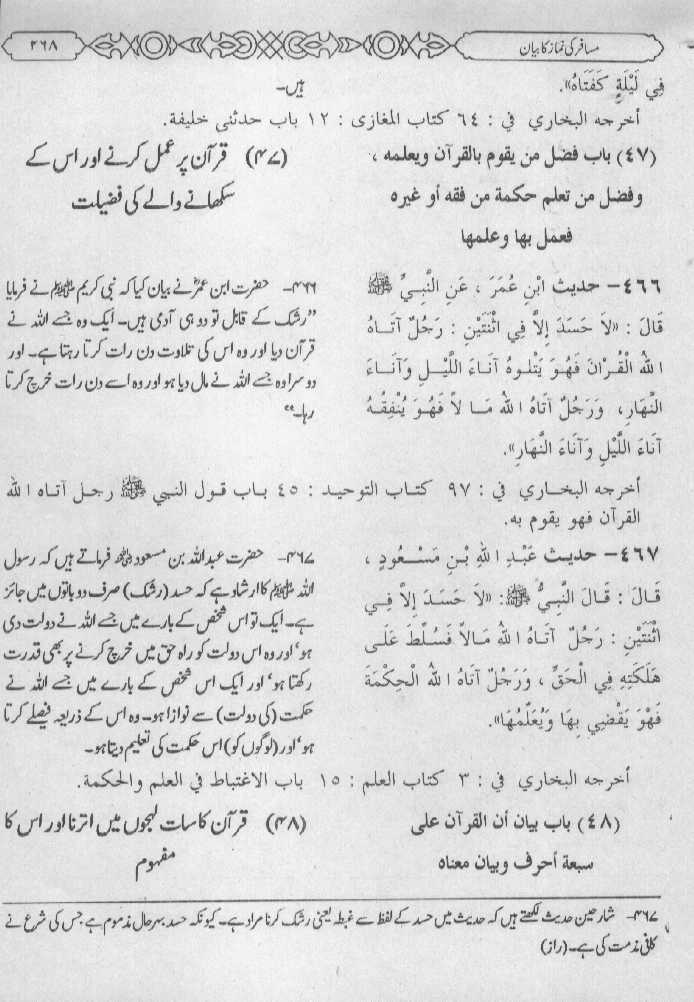 مسافر کی نماز کا بیان
۲۶۸
فِي لَيْلَةٍ كَفَتَاهُ».
ہیں۔
أخرجه البخاري في : ٦٤ كتاب المغازى : ١٢ باب حدثنى خليفة.
(٤٧) باب فضل من يقوم بالقرآن ويعلمه ،
وفضل من تعلم حكمة من فقه أو غيره
فعمل بها وعلمها
(۴۷) قرآن پر عمل کرنے اور اس کے
سکھانے والے کی فضیلت
٤٦٦– حديث ابْنِ عُمَرَ ، عَنِ النَّبِيِّ ﷺ
قَالَ : «لاَ حَسَدَ إِلاَّ فِي اثْنَتَيْنِ : رَجُلٌ آتَاهُ
اللهُ الْقُرْآنَ فَهُوَ يَتْلوهُ آنَاءَ اللَّيْلِ وَآنَاءَ
النَّهَارِ، وَرَجُلٌ آتَاهُ اللهُ مَالاً فَهُوَ يُنْفِقُهُ
آنَاءَ اللَّيْلِ وَآنَاءَ النَّهَارِ».
۴۶۶۔ حضرت ابن عمرؓ نے بیان کیا کہ نبی کریم ﷺ نے فرمایا
”رشک کے قابل تو دو ہی آدمی ہیں۔ ایک وہ جسے اللہ نے
قرآن دیا اور وہ اس کی تلاوت دن رات کرتا رہتا ہے۔ اور
دوسرا وہ جسے اللہ نے مال دیا ہو اور وہ اسے دن رات خرچ کرتا
رہا۔“
أخرجه البخاري في : ٩٧ كتاب التوحيد : ٤٥ باب قول النبي ﷺ رجل آتاه الله
القرآن فهو يقوم به.
٤٦٧– حديث عَبْدِ اللهِ بْنِ مَسْعُودٍ ،
قَالَ : قَالَ النَّبِيُّ ﷺ: «لاَ حَسَدَ إِلاَّ فِي
اثْنَتَيْنِ : رَجُلٌ آتَاهُ اللهُ مَالاً فَسُلِّطَ عَلَى
هَلَكَتِهِ فِي الْحَقِّ ، وَرَجُلٌ آتَاهُ اللهُ الْحِكْمَةَ
فَهْوَ يَقْضِي بِهَا وَيُعَلِّمُهَا».
۴۶۷۔ حضرت عبداللہ بن مسعود ؓ فرماتے ہیں کہ رسول
اللہ ﷺ کا ارشاد ہے کہ حسد (رشک) صرف دو باتوں میں جائز
ہے۔ ایک تو اس شخص کے بارے میں جسے اللہ نے دولت دی
ہو‘ اور وہ اس دولت کو راہ حق میں خرچ کرنے پر بھی قدرت
رکھتا ہو‘ اور ایک اس شخص کے بارے میں جسے اللہ نے
حکمت (کی دولت) سے نوازا ہو۔ وہ اس کے ذریعہ فیصلے کرتا
ہو‘ اور (لوگوں کو) اس حکمت کی تعلیم دیتا ہو۔
أخرجه البخاري في : ٣ كتاب العلم : ١٥ باب الاغتباط في العلم والحكمة.
(٤٨) باب بيان أن القرآن على
سبعة أحرف وبيان معناه
(۴۸) قرآن کا سات لہجوں میں اترنا اور اس کا
مفہوم
۴۶۷۔ شارحین حدیث لکھتے ہیں کہ حدیث میں حسد کے لفظ سے غبطہ یعنی رشک کرنا مراد ہے۔ کیونکہ حسد بہر حال مذموم ہے جس کی شرع نے
کافی مذمت کی ہے۔ (راز)